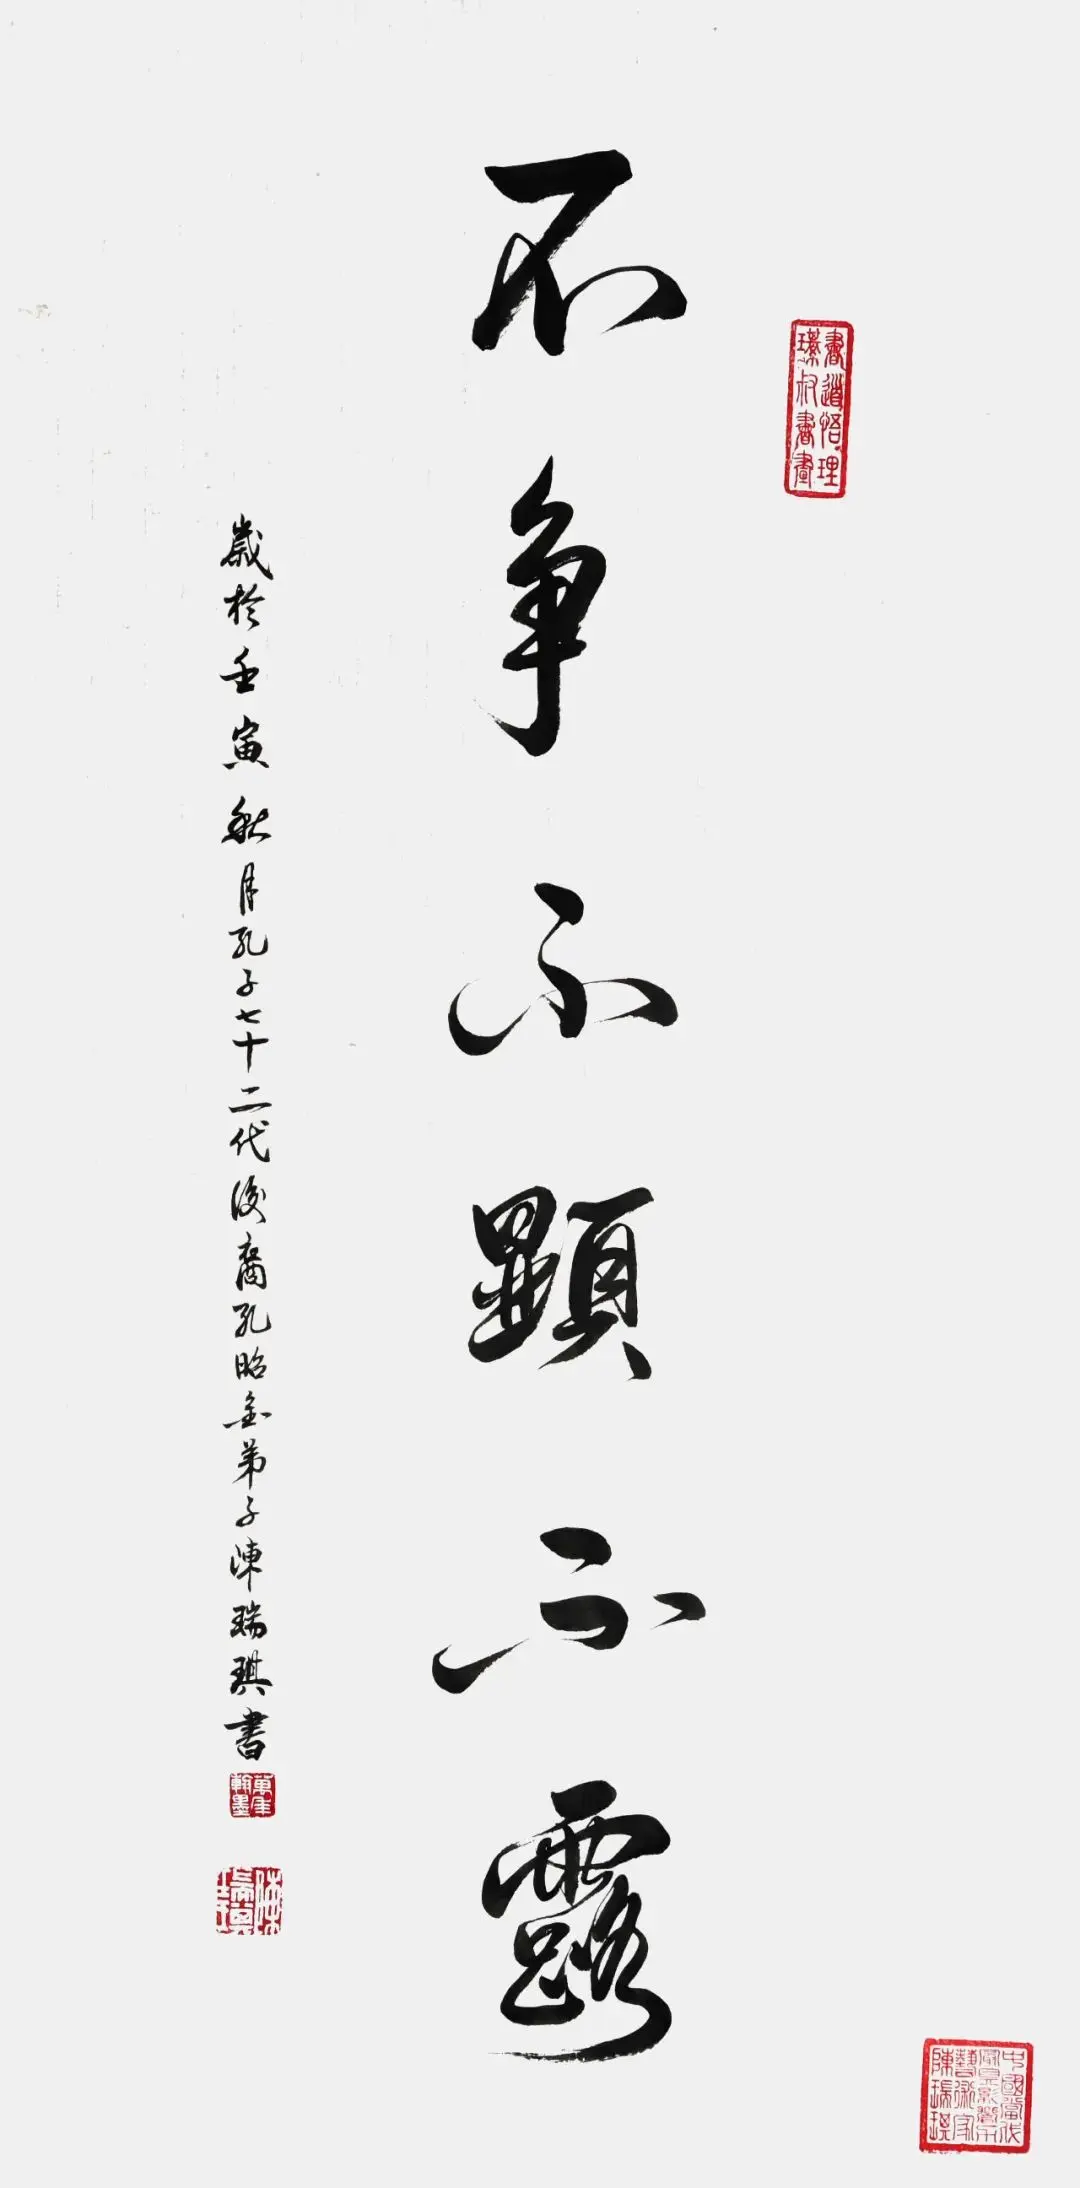 書道悟理
璞叔書畫
不争不顯不露
歲於壬寅秋月孔子七十二代後裔孔昭金弟子陳瑞琪書
萬年
翰墨
中國當代
藝術家
陳瑞琪